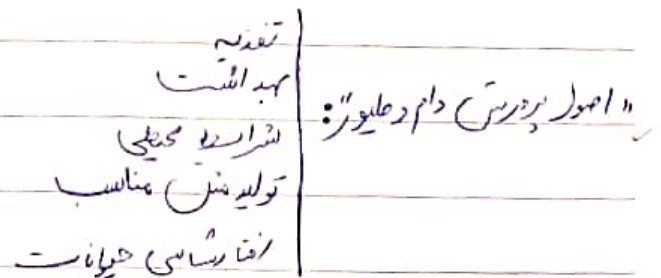 "اصول پرورش دام و طیور":
تغذیه
بهداشت
شرایط محیطی
تولید مثل مناسب
رفتارشناسی حیوانات